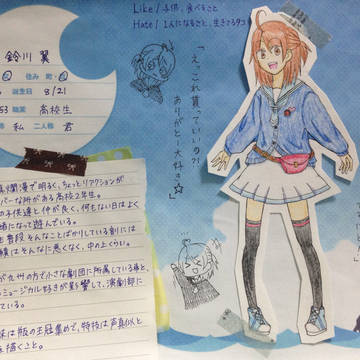 鈴川 翼
住み 町
誕生日 8/21
53 職業 高校生
私 二人称 君
Like/子供、食べること
Hate/1人になること、生きてるタコ
「えっこれ貰っていいの?!
ありがとー大好き☆」
爛漫で明るく、ちょっとリアクションが
バーな所がある高校2年生。
の子供達と仲が良く、何もない日はよく
緒になって遊んでいる。
普段そんなことばかりしている割には
績はそんなに悪くなく、中の上くらい。
が九州の方で小さな劇団に所属している様と、
ミュージカル好きが影響して、演劇部に
ている。
味は瓶の王冠集めで、特技は声真似と
描くこと。